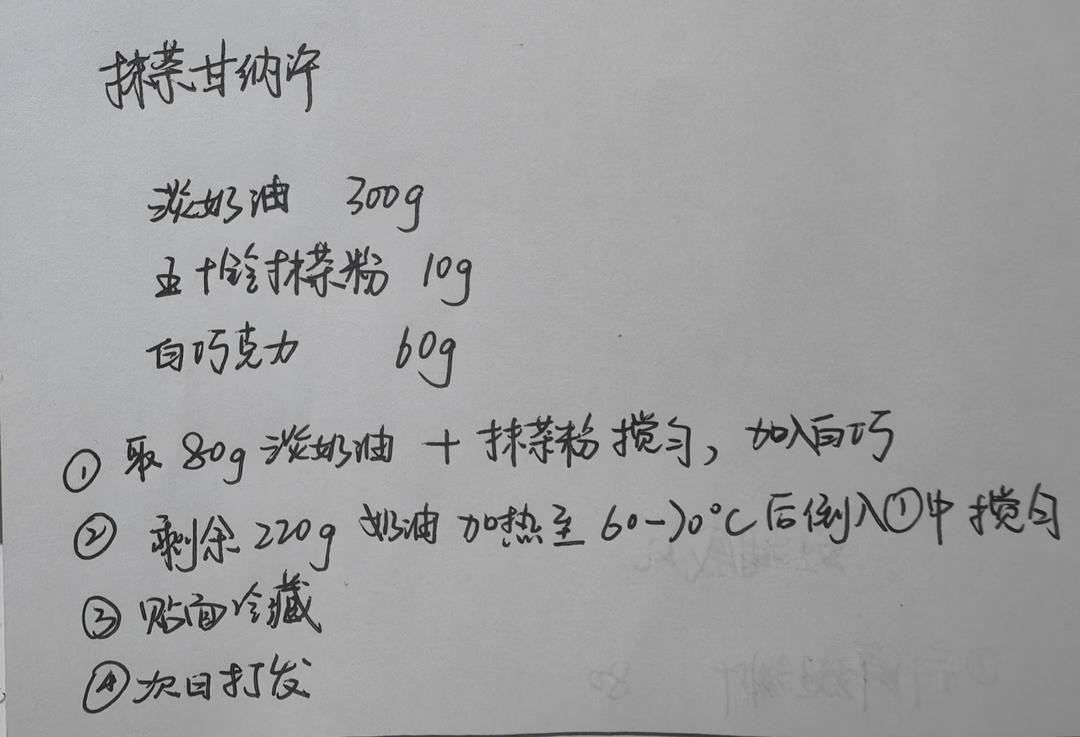 抹茶甘纳许
淡奶油 300g
五十铃抹茶粉 10g
白巧克力 60g
① 取 80g 淡奶油 + 抹茶粉 搅匀, 加入白巧
② 剩余 220g 奶油 加热至 60-70°C 后倒入①中 搅匀
③ 贴面冷藏
④ 次日打发